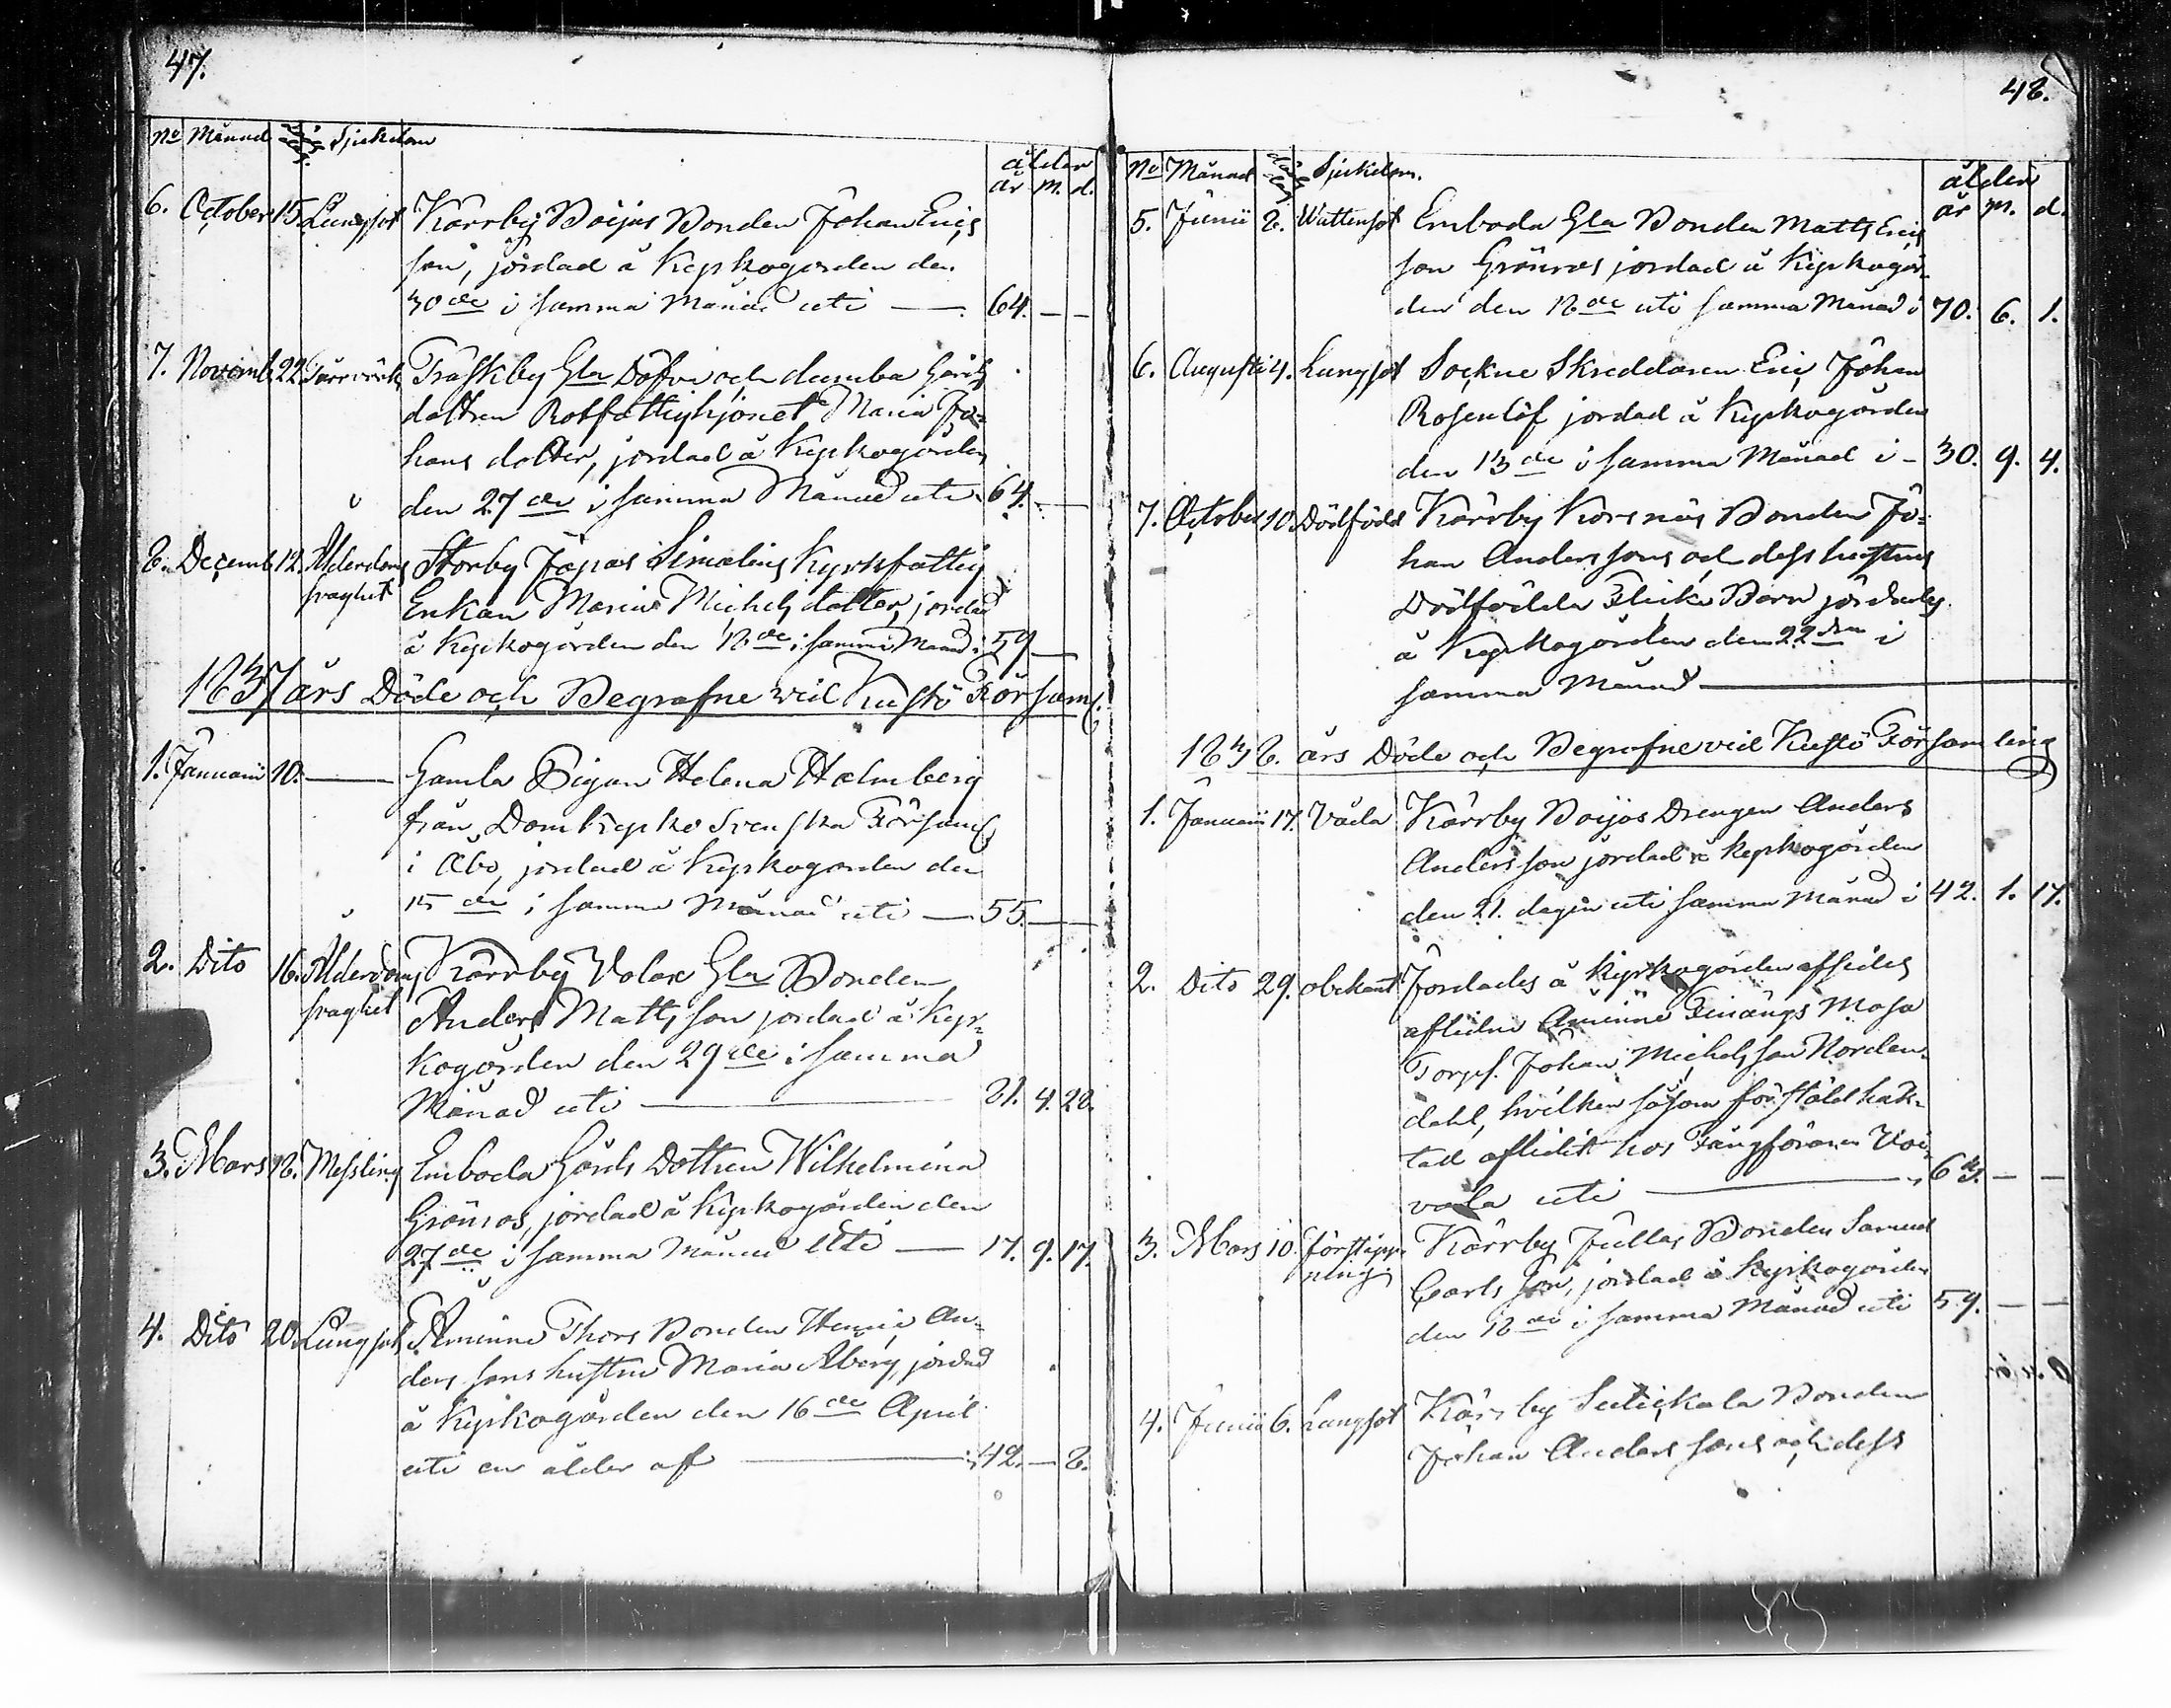 47.
No Månad Sjukdom ålder
år m. d.
6. October 15. Lungsot Kärrby Boijas Bonden Johan Erics
son, jordad å Kyrkogården den
30de i samma Månad uti — 64. — —
7. Novemb. 22. Träskby Gla Döfva och dumba Gårds
dottren Rotfattighjonet Maria Jo=
hans dotter, jordad å Kyrkogården
den 27de i samma Månad uti 64. —
8. Decemb. 12. Ålderdoms Storby Jopas Simolins Kyrkfattig
fraghet Enkan Maria Michels dotter, jordad
å Kyrkogården den 18de i samma Månad i 59 —
1837 års Döde och Begrafne vid Kustö Församl.
1. Januarii 10. — Gamla Pigan Helena Holmberg
från Domkyrko Svenska Församl.
i Åbo, jordad å Kyrkogården den
15de i samma Månad uti — 55. —
2. Dito 16. Ålderdoms Kärrby Volax Gla Bonden
fraghet Anders Matts son jordad å Kyr=
kogården den 29de i samma
Månad uti — 81. 4. 28.
3. Mars 18. Messling Emboda Gårds Dottren Wilhelmina
Grönros, jordad å Kyrkogården den
27de i samma Månad uti — 17. 9. 17.
4. Dito 20. Lungsot Åminne Thors Bonden Henric An=
ders sons hustru Maria Åberg, jordad
å Kyrkogården den 16de April
uti en ålder af — 42. — 8.
48.
No Månad Sjukdom. ålder
år m. d.
5. Junii 8. Wattensot Emboda Gla Bonden Matts Erics
son Grönros jordad å Kyrkogår=
den den 18de uti samma Månad i 70. 6. 1.
6. Augusti 4. Lungsot Sockne Skreddaren Eric Johan
Rosenlöf jordad å Kyrkogården
den 13de i samma Månad i — 30. 9. 4.
7. October 10. Dödfödd Kärrby Korsnäs Bonden Jo=
han Anderssons och dess hustrus
Dödfödda Flicke Barn jordades
å Kyrkogården den 22dra i
samma Månad —
1838. års Döde och Begrafne vid Kustö Församling
1. Januarii 17. Våda Kärrby Boijas Drengen Anders
Andersson jordad å Kyrkogården
den 21. dagen uti samma Månad i 42. 1. 17.
2. Dito 29. obekant Jordades å Kyrkogården afsides
aflidne Åminne Mosa
Torp. Johan Michelsson Norden=
dahl, hvilken såsom häk=
tad aflidit hos Fångföraren Voi=
vala uti — 63. — —
3. Mars 10. förstopp= Kärrby Jullas Bonden Samuel
ning Carls son, jordad å Kyrkogården
den 18de i samma Månad uti 59. — —
4. Junii 6. Lungsot Kärrby Bonden
Johan Anders sons och dess